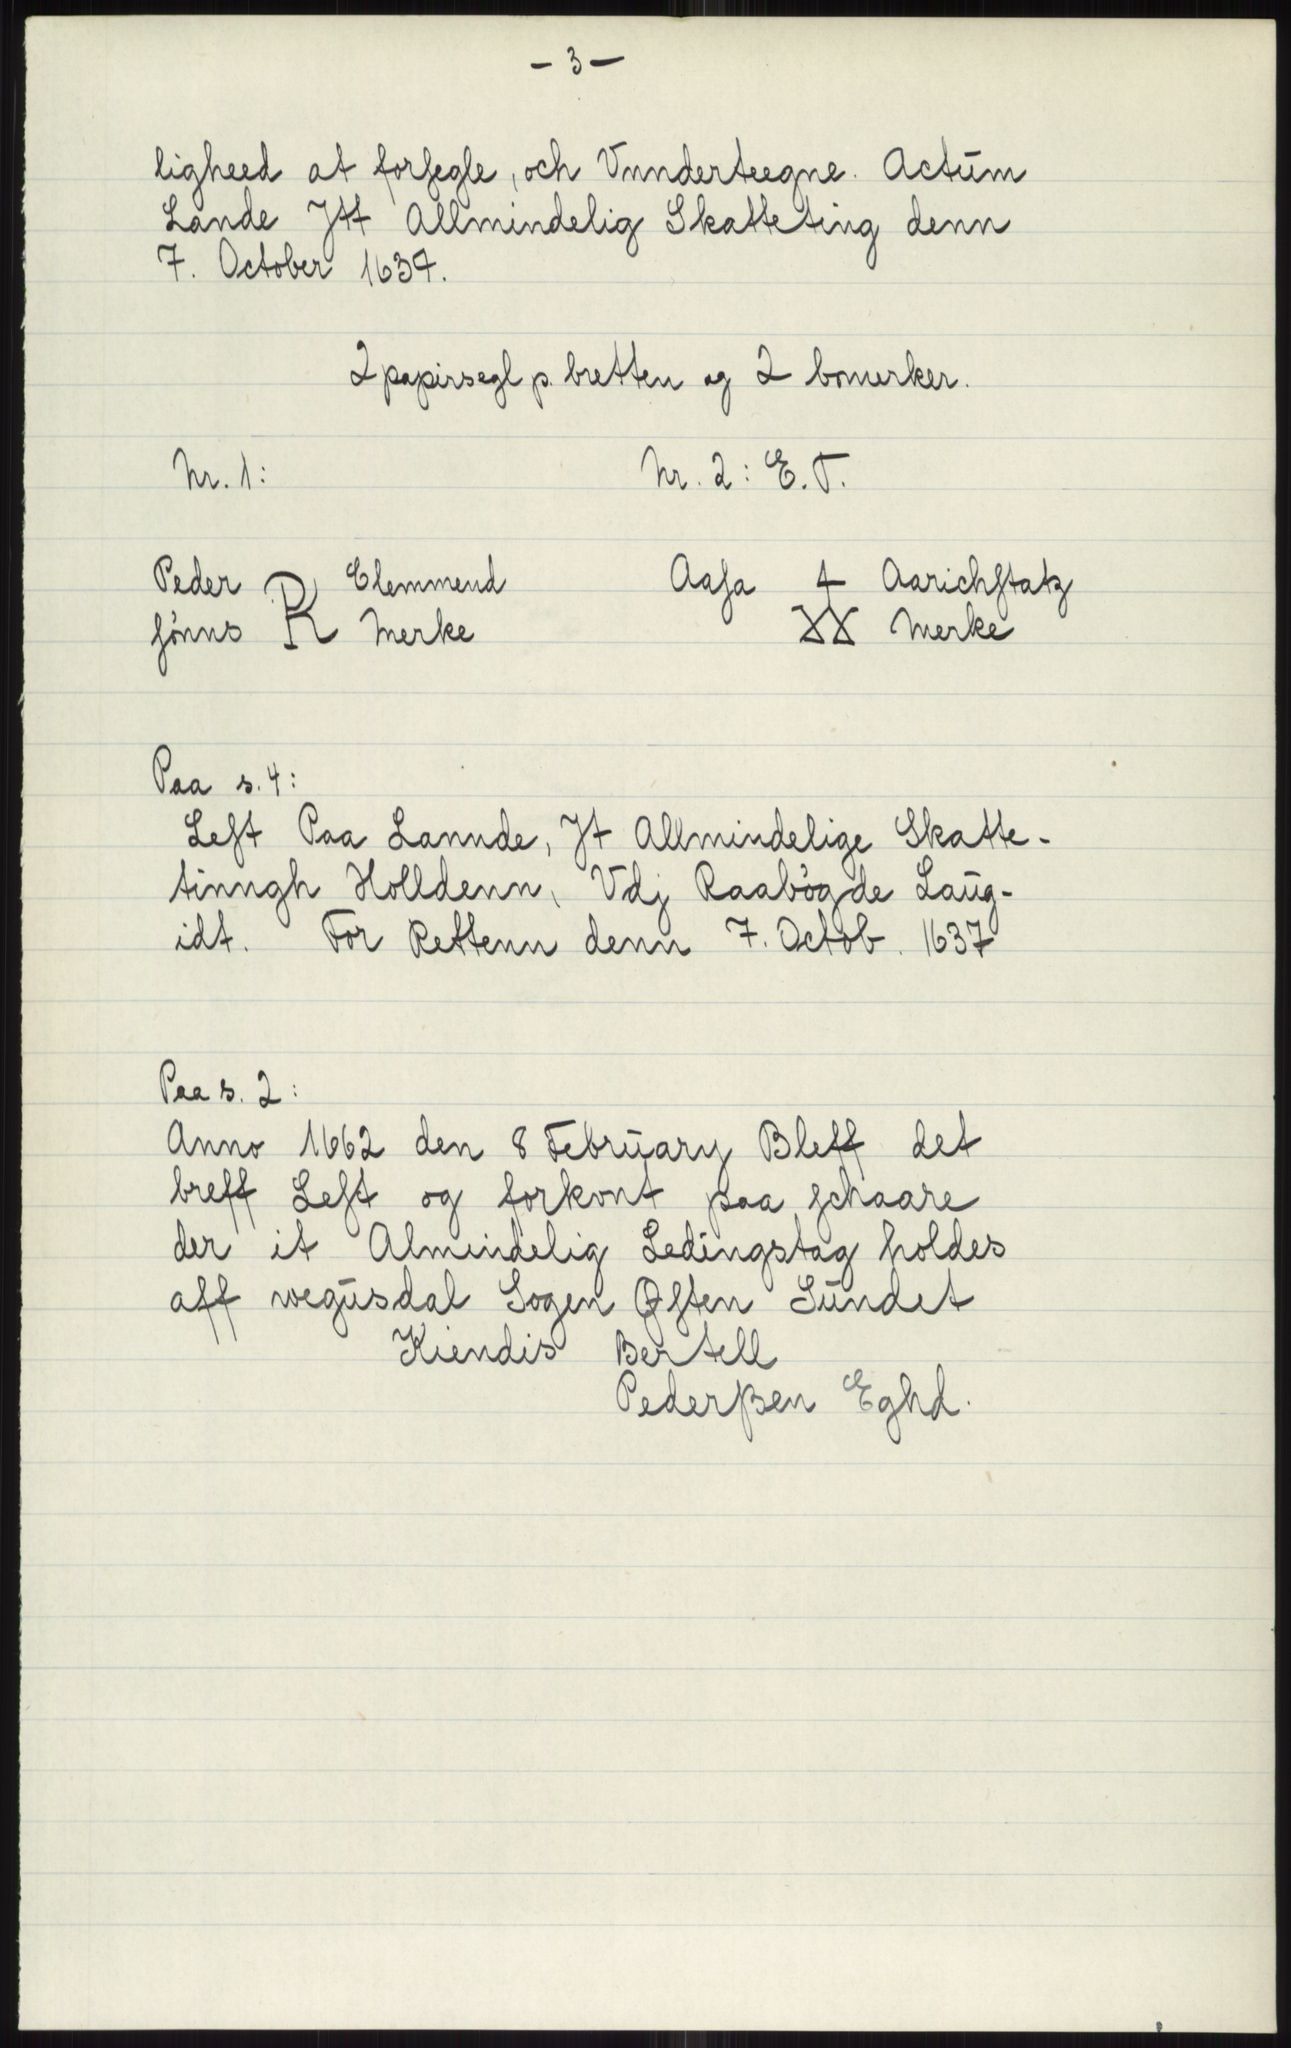 - 3 -
ligheed at forſegle, och Vnnderteegne. Actūm
Lande Jtt Allmindelig Skatteting denn
7. October 1637.
2 papirsegl p. bretten og 2 bomerker.
Nr. 1: Nr. 2: E. T.
Peder R Clemmend Aaſa Aarichſtatz
ſønns Merke Merke
Paa s. 4:
Leſt Paa Lannde, Jt Allmindelige Skatte-
tinngh Holldenn, Vdj Raabøgde Laūg-
idt. For Rettenn denn 7. Octob. 1637
Paa s. 2:
Anno 1662 den 8 Februāry Bleff det
breff Leſt og forkont paa ſchaare
der it Almindelig Ledingstag holdes
aff wegūsdal Sogen Øſten Sūndet
Kiendis Bertell
Pederßen Eghd.